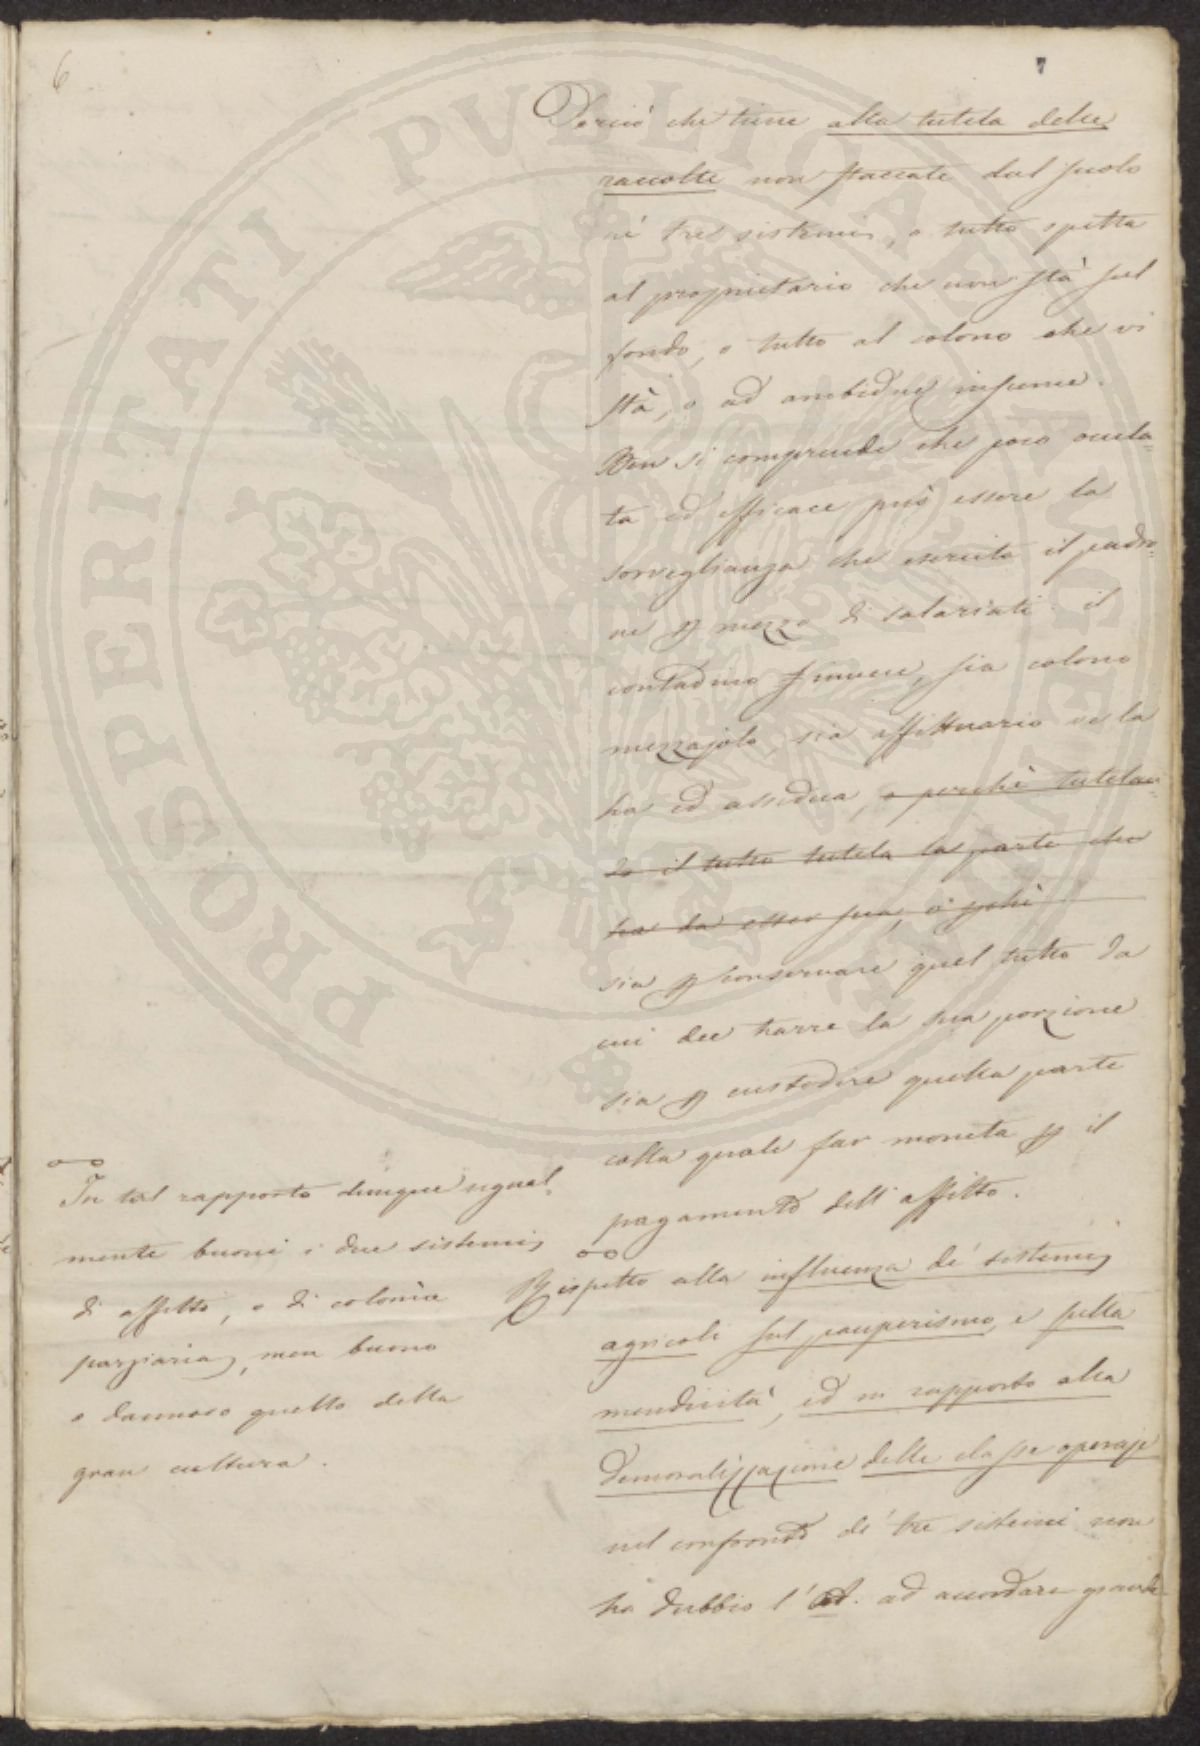 6
7
Perciò che tiene alla tutela delle
raccolte non staccate dal suolo
ne' tre sistemi, o tutto spetta
al proprietario che non stà sul
fondo, o tutto al colono che vi
stà, o ad ambidue insieme.
Ben si comprende che poco ocula=
ta ed efficace può essere la
sorveglianza che esercita il padro=
ne p mezzo di salariati: il
contadino invece, sia colono
mezzajolo, sia affittuario ve la
ha ed assidua, o perchè tutelan=
do il tutto tutela la parte che
ha da esser sua, o pchè
sia p conservare quel tutto da
cui dee trarre la sua porzione
sia p custodire quella parte
colla quale far moneta p il
pagamento dell'affitto.
In tal rapporto dunque egual=
mente buoni i due sistemi
di affitto, e di colonìa
parziaria, men buono
o dannoso quello della
gran cultura.
Rispetto alla influenza de' sistemi
agricoli sul pauperismo e sulla
mendicità, ed in rapporto alla
demoralizzazione delle classe operaje
nel confronto de' tre sistemi non
ha dubbio l'A. ad accordare grande
PROSPERITATI PVBLICAE AVGENDAE